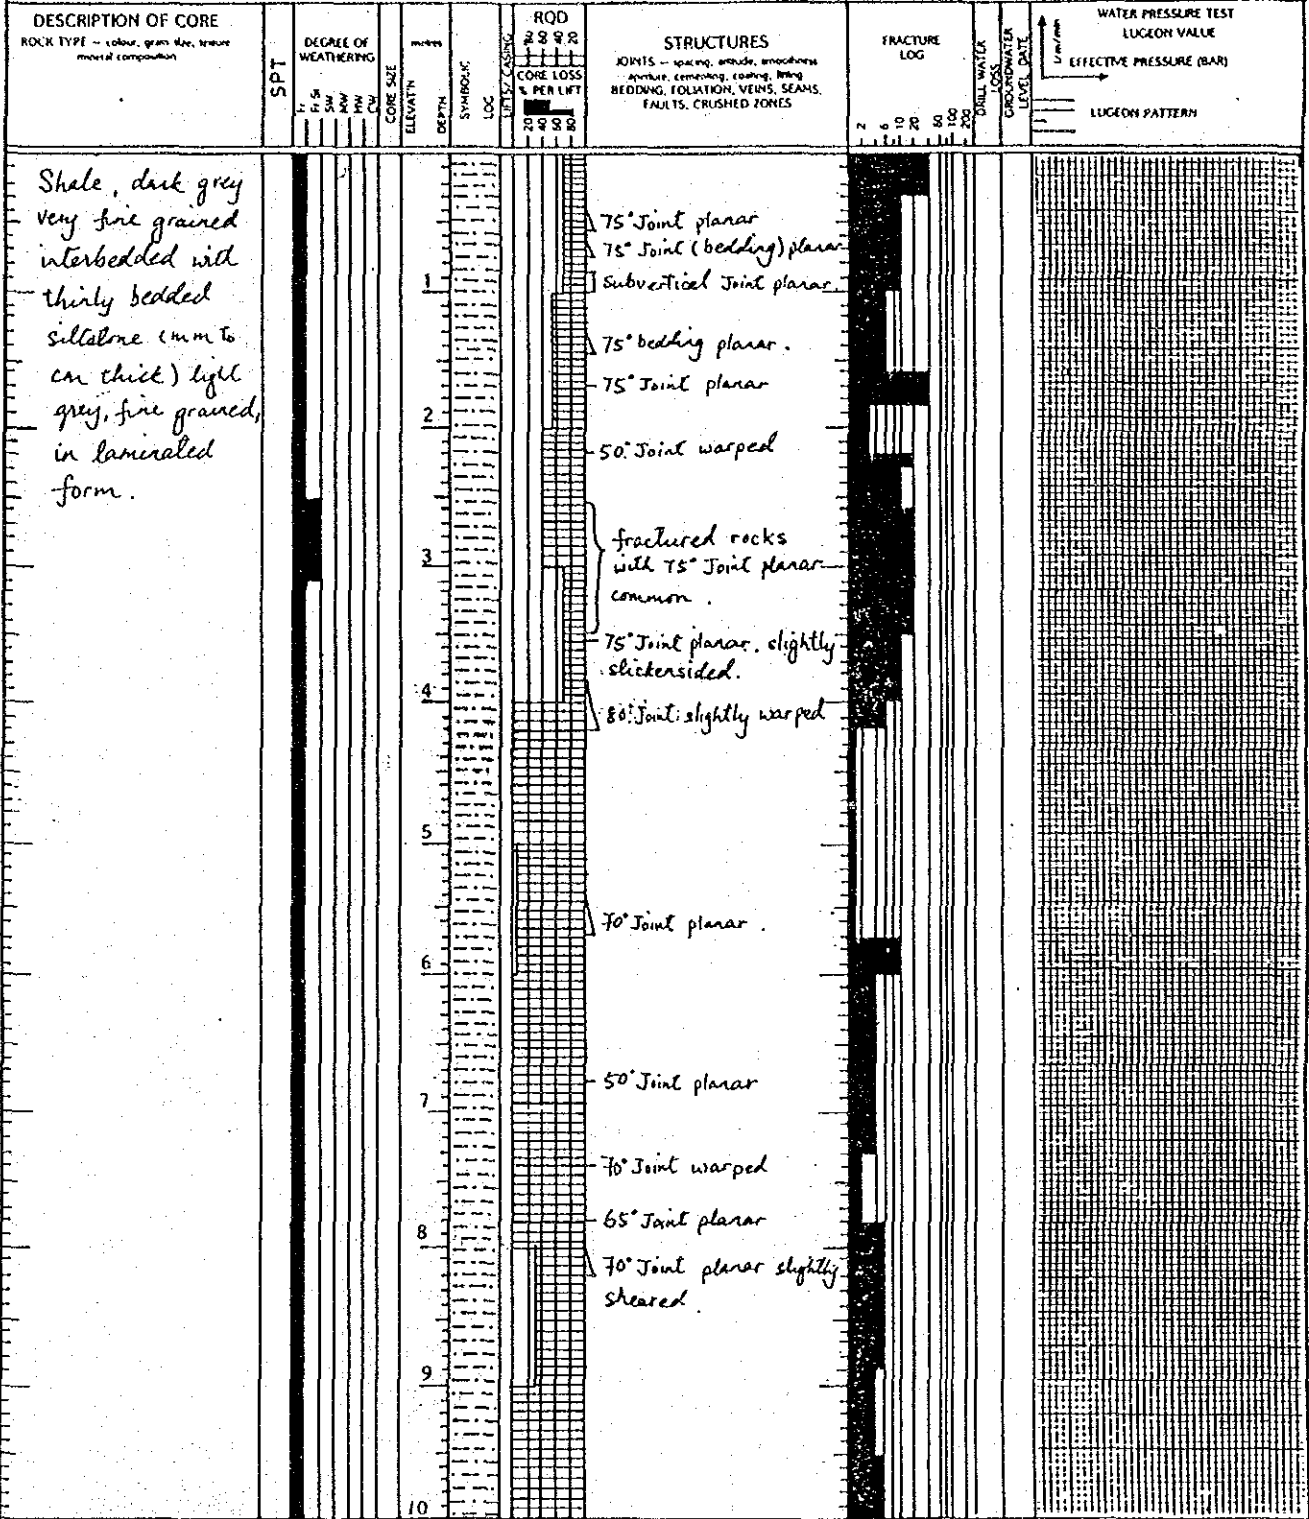 DESCRIPTION OF CORE
ROCK TYPE – colour, grain size, texture
mineral composition
SPT
DEGREE OF
WEATHERING
Fr
Fr St
SW
MW
HW
CW
CORE SIZE
metres
ELEVAT'N
DEPTH
SYMBOLIC
LOG
LIFTS/CASING
RQD
80 60 40 20
CORE LOSS
% PER LIFT
20 40 60 80
STRUCTURES
JOINTS – spacing, attitude, smoothness
aperture, cementing, coating, lining
BEDDING, FOLIATION, VEINS, SEAMS,
FAULTS, CRUSHED ZONES
FRACTURE
LOG
2 6 10 20 60 100 200
DRILL WATER
LOSS
GROUNDWATER
LEVEL DATE
WATER PRESSURE TEST
LUGEON VALUE
EFFECTIVE PRESSURE (BAR)
LUGEON PATTERN
Shale, dark grey
very fine grained
interbedded with
thinly bedded
siltstone (mm to
cm thick) light
grey, fine grained,
in laminated
form.
1
2
3
4
5
6
7
8
9
10
75° Joint planar
75° Joint (bedding) planar
Subvertical Joint planar.
75° bedding planar.
75° Joint planar
50° Joint warped
fractured rocks
with 75° Joint planar
common.
75° Joint planar, slightly
slickensided.
80° Joint slightly warped
70° Joint planar.
50° Joint planar
70° Joint warped
65° Joint planar
70° Joint planar slightly
sheared.